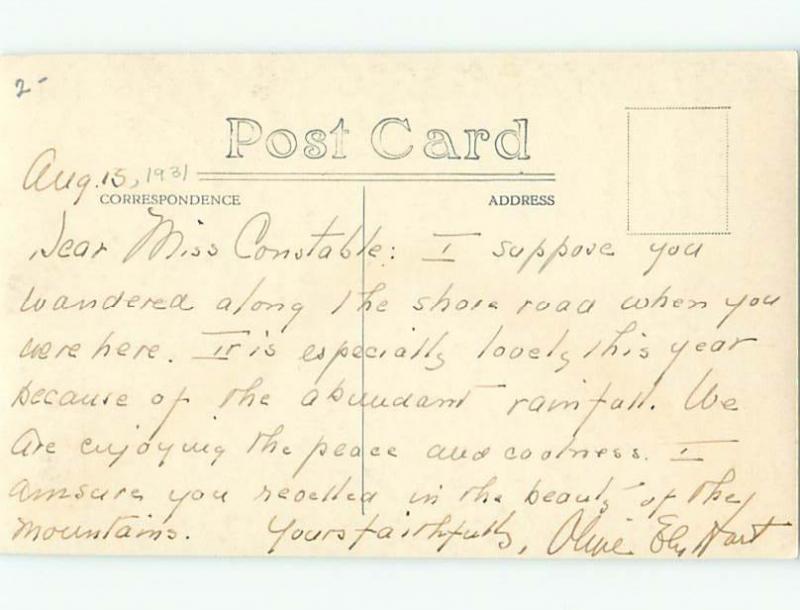 2-
Post Card
Aug. 15, 1931
CORRESPONDENCE
ADDRESS
Dear Miss Constable: I suppose you
wandered along the shore road when you
were here. It is especially lovely this year
because of the abundant rainfall. We
are enjoying the peace and coolness. I
am sure you revelled in the beauty of the
mountains. Yours faithfully, Olive Ely Hart